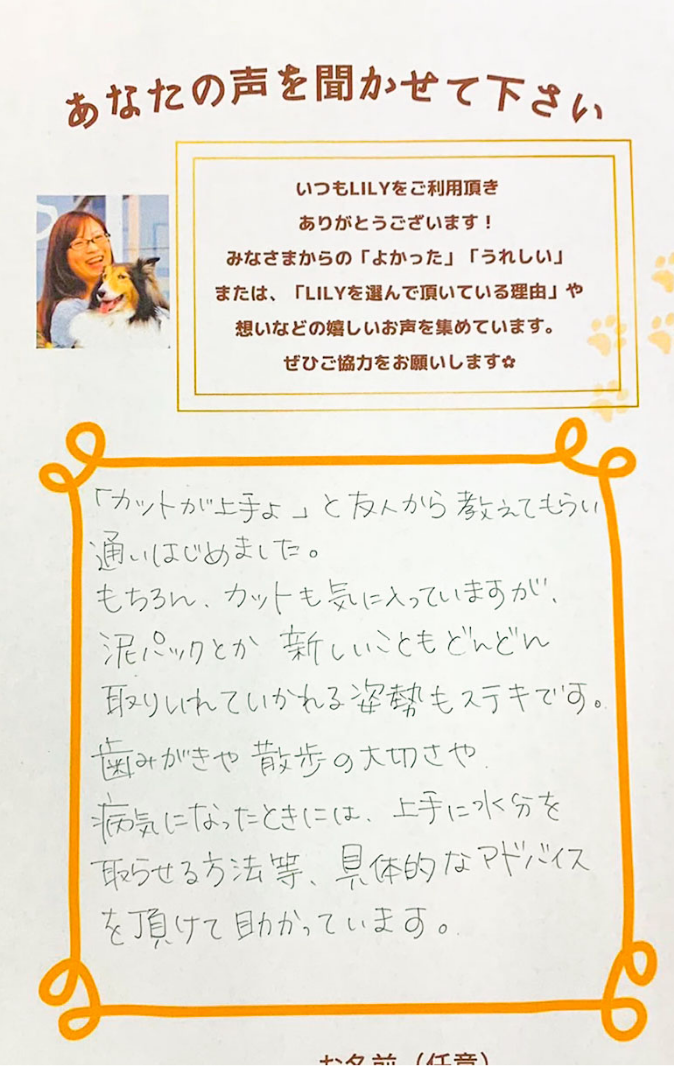 あなたの声を聞かせて下さい
いつもLILYをご利用頂き
ありがとうございます！
みなさまからの「よかった」「うれしい」
または、「LILYを選んで頂いている理由」や
想いなどの嬉しいお声を集めています。
ぜひご協力をお願いします✿
「カットが上手よ」と友人から教えてもらい
通いはじめました。
もちろん、カットも気に入っていますが、
泥パックとか 新しいこともどんどん
取りいれていかれる姿勢もステキです。
歯みがきや 散歩の大切さや
病気になったときには、上手に水分を
取らせる方法等、具体的なアドバイス
を頂けて助かっています。
お名前（任意）